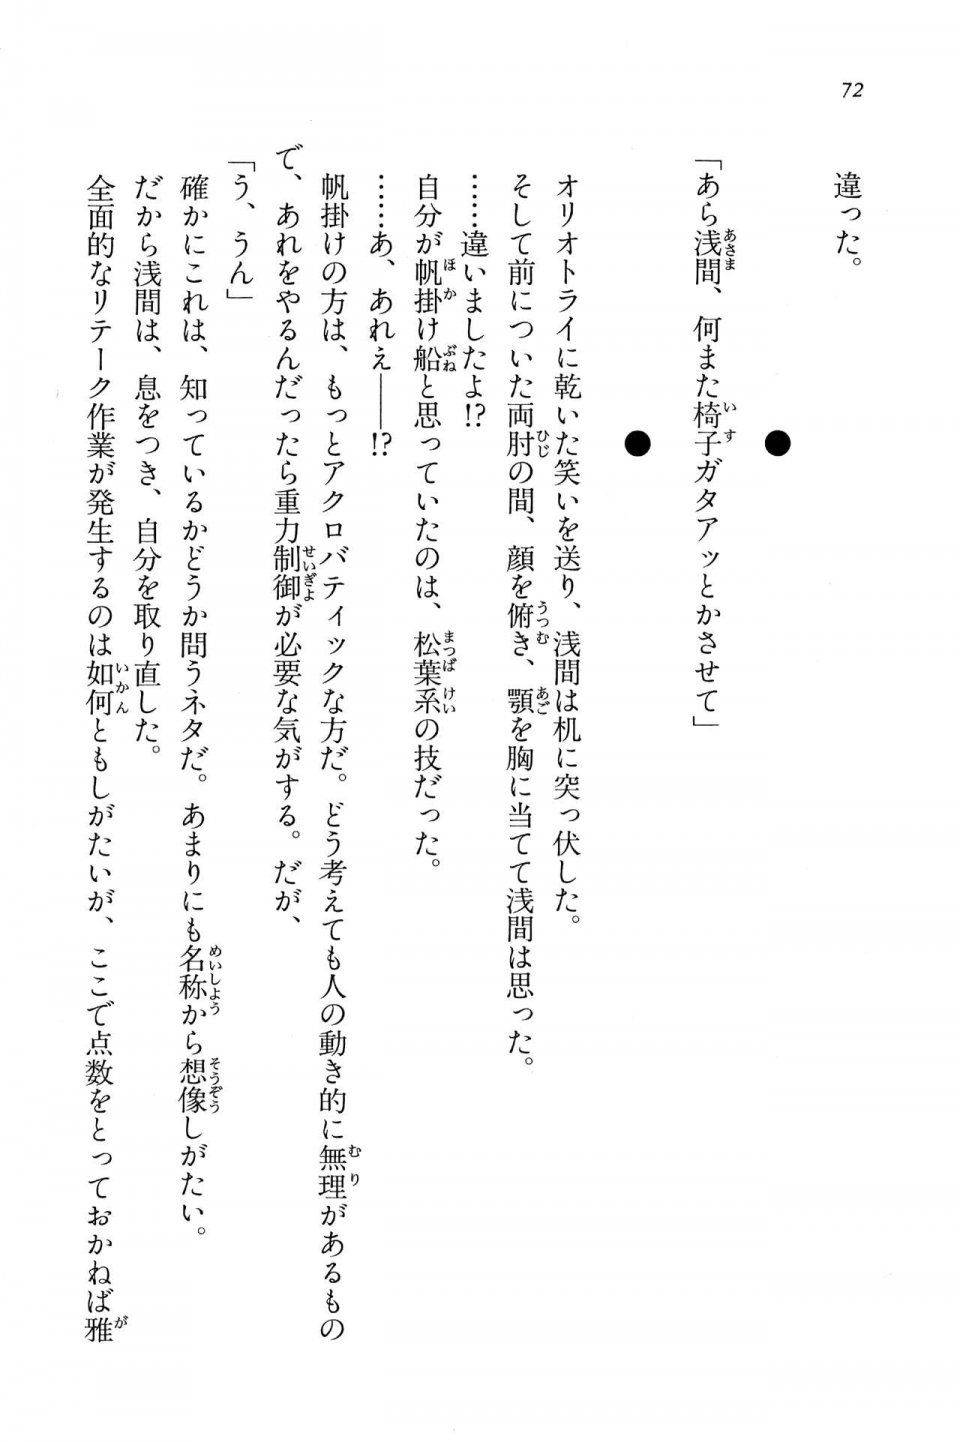 72
違った。
●
「あら浅間、何また椅子ガタアッとかさせて」
●
オリオトライに乾いた笑いを送り、浅間は机に突っ伏した。
そして前についた両肘の間、顔を俯き、顎を胸に当てて浅間は思った。
……違いましたよ!?
自分が帆掛け船と思っていたのは、松葉系の技だった。
……あ、あれぇ――!?
帆掛けの方は、もっとアクロバティックな方だ。どう考えても人の動き的に無理があるもの
で、あれをやるんだったら重力制御が必要な気がする。だが、
「う、うん」
確かにこれは、知っているかどうか問うネタだ。あまりにも名称から想像しがたい。
だから浅間は、息をつき、自分を取り直した。
全面的なリテーク作業が発生するのは如何ともしがたいが、ここで点数をとっておかねば雅